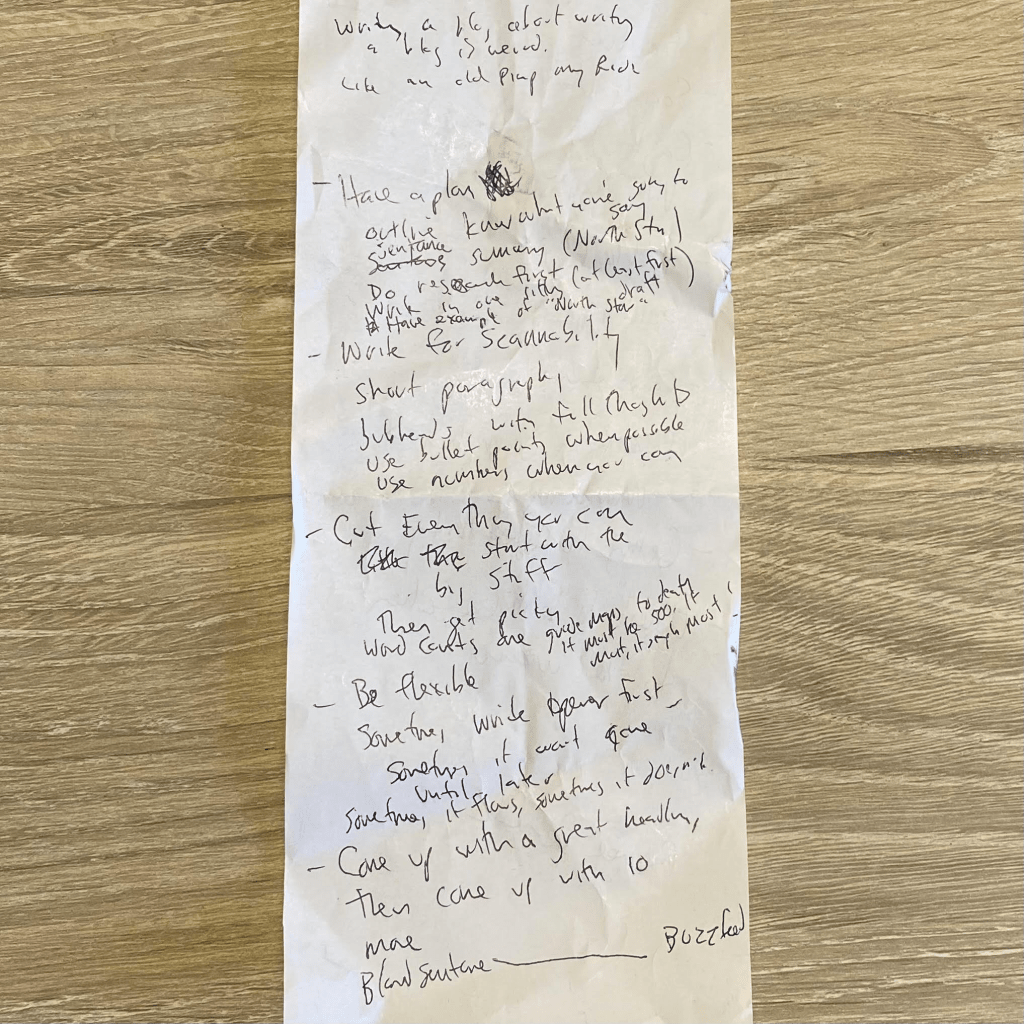 Writing a blog about writing
a blog is weird.
Like an old Pimp my Ride
- Have a plan
outline know what you're going to
say
sentance summary (North Star)
Do research first
Work in one sitting (at least first)
draft
Have example of "North Star"
- Write for Scannability
short paragraphs
Subheads with full thoughts
use bullet points when possible
use numbers when you can
- Cut Everything you can
start with the
big stuff
Then get picky
word counts are guide maps, to death
it must be 500, it
must, it simply must!
- Be flexible
Sometimes write opener first
sometimes it won't come
until later
sometimes it flows, sometimes it doesn't
- Come up with a great headline,
then come up with 10
more
Bland sentance ——— Buzzfeed